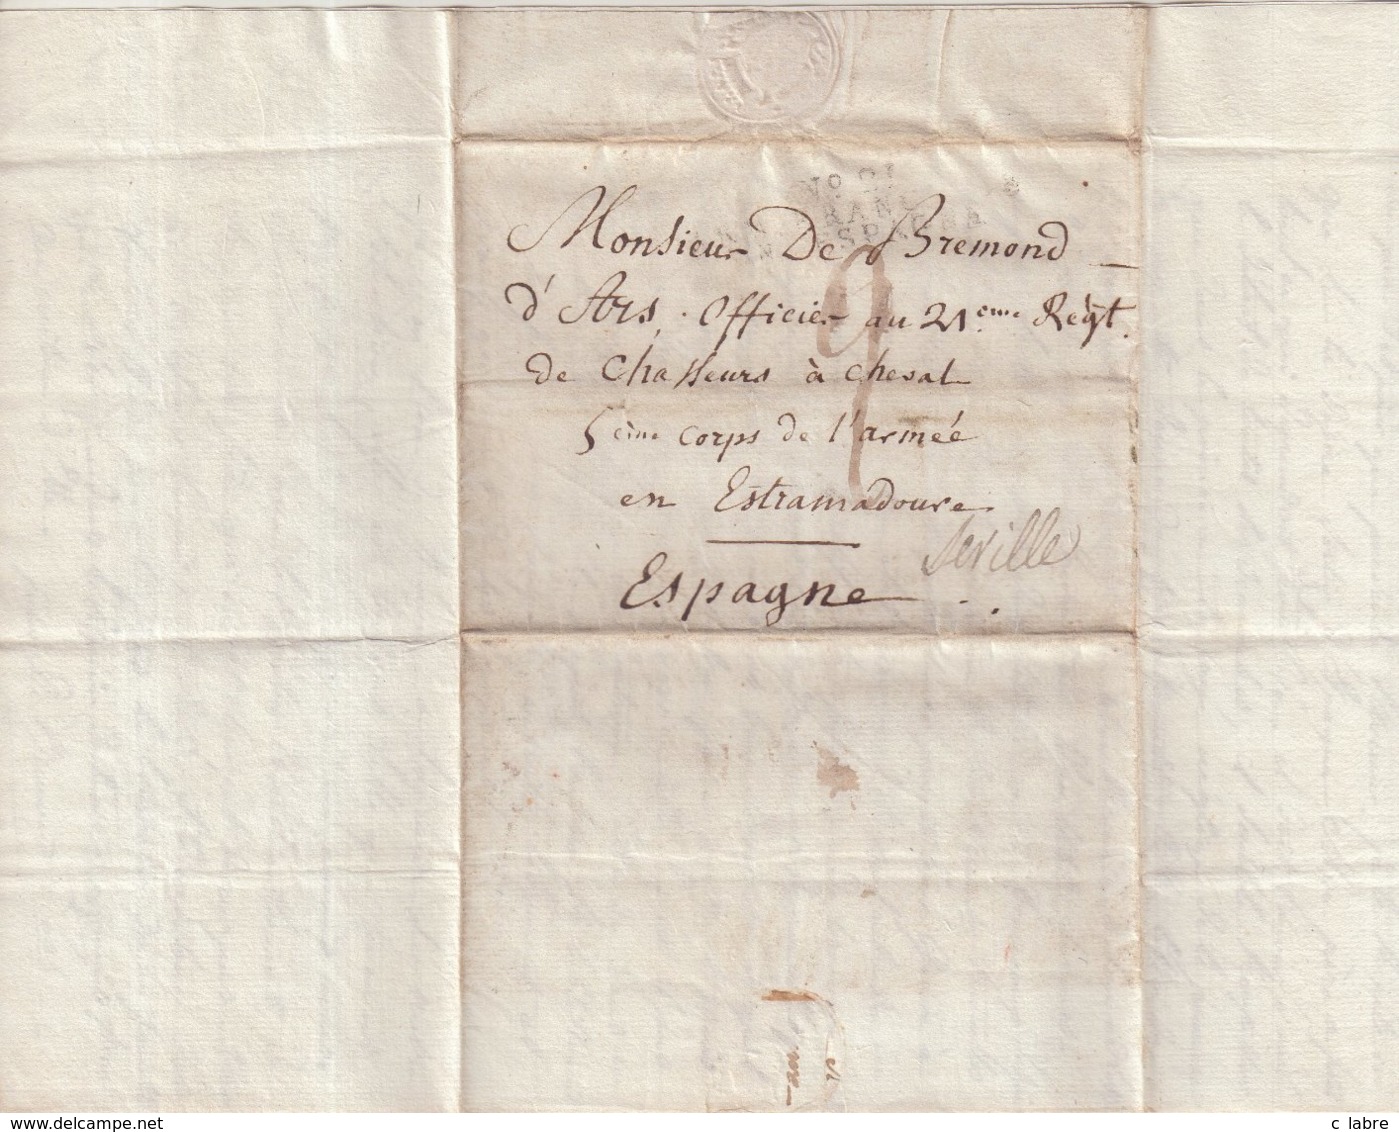 No 21
Monsieur De Bremond
d'Ars, Officier au 21.eme Regt.
de Chasseurs à cheval
5eme corps de l'armeé
en Estramadoure
Seville
Espagne
www.delcampe.net
c labre